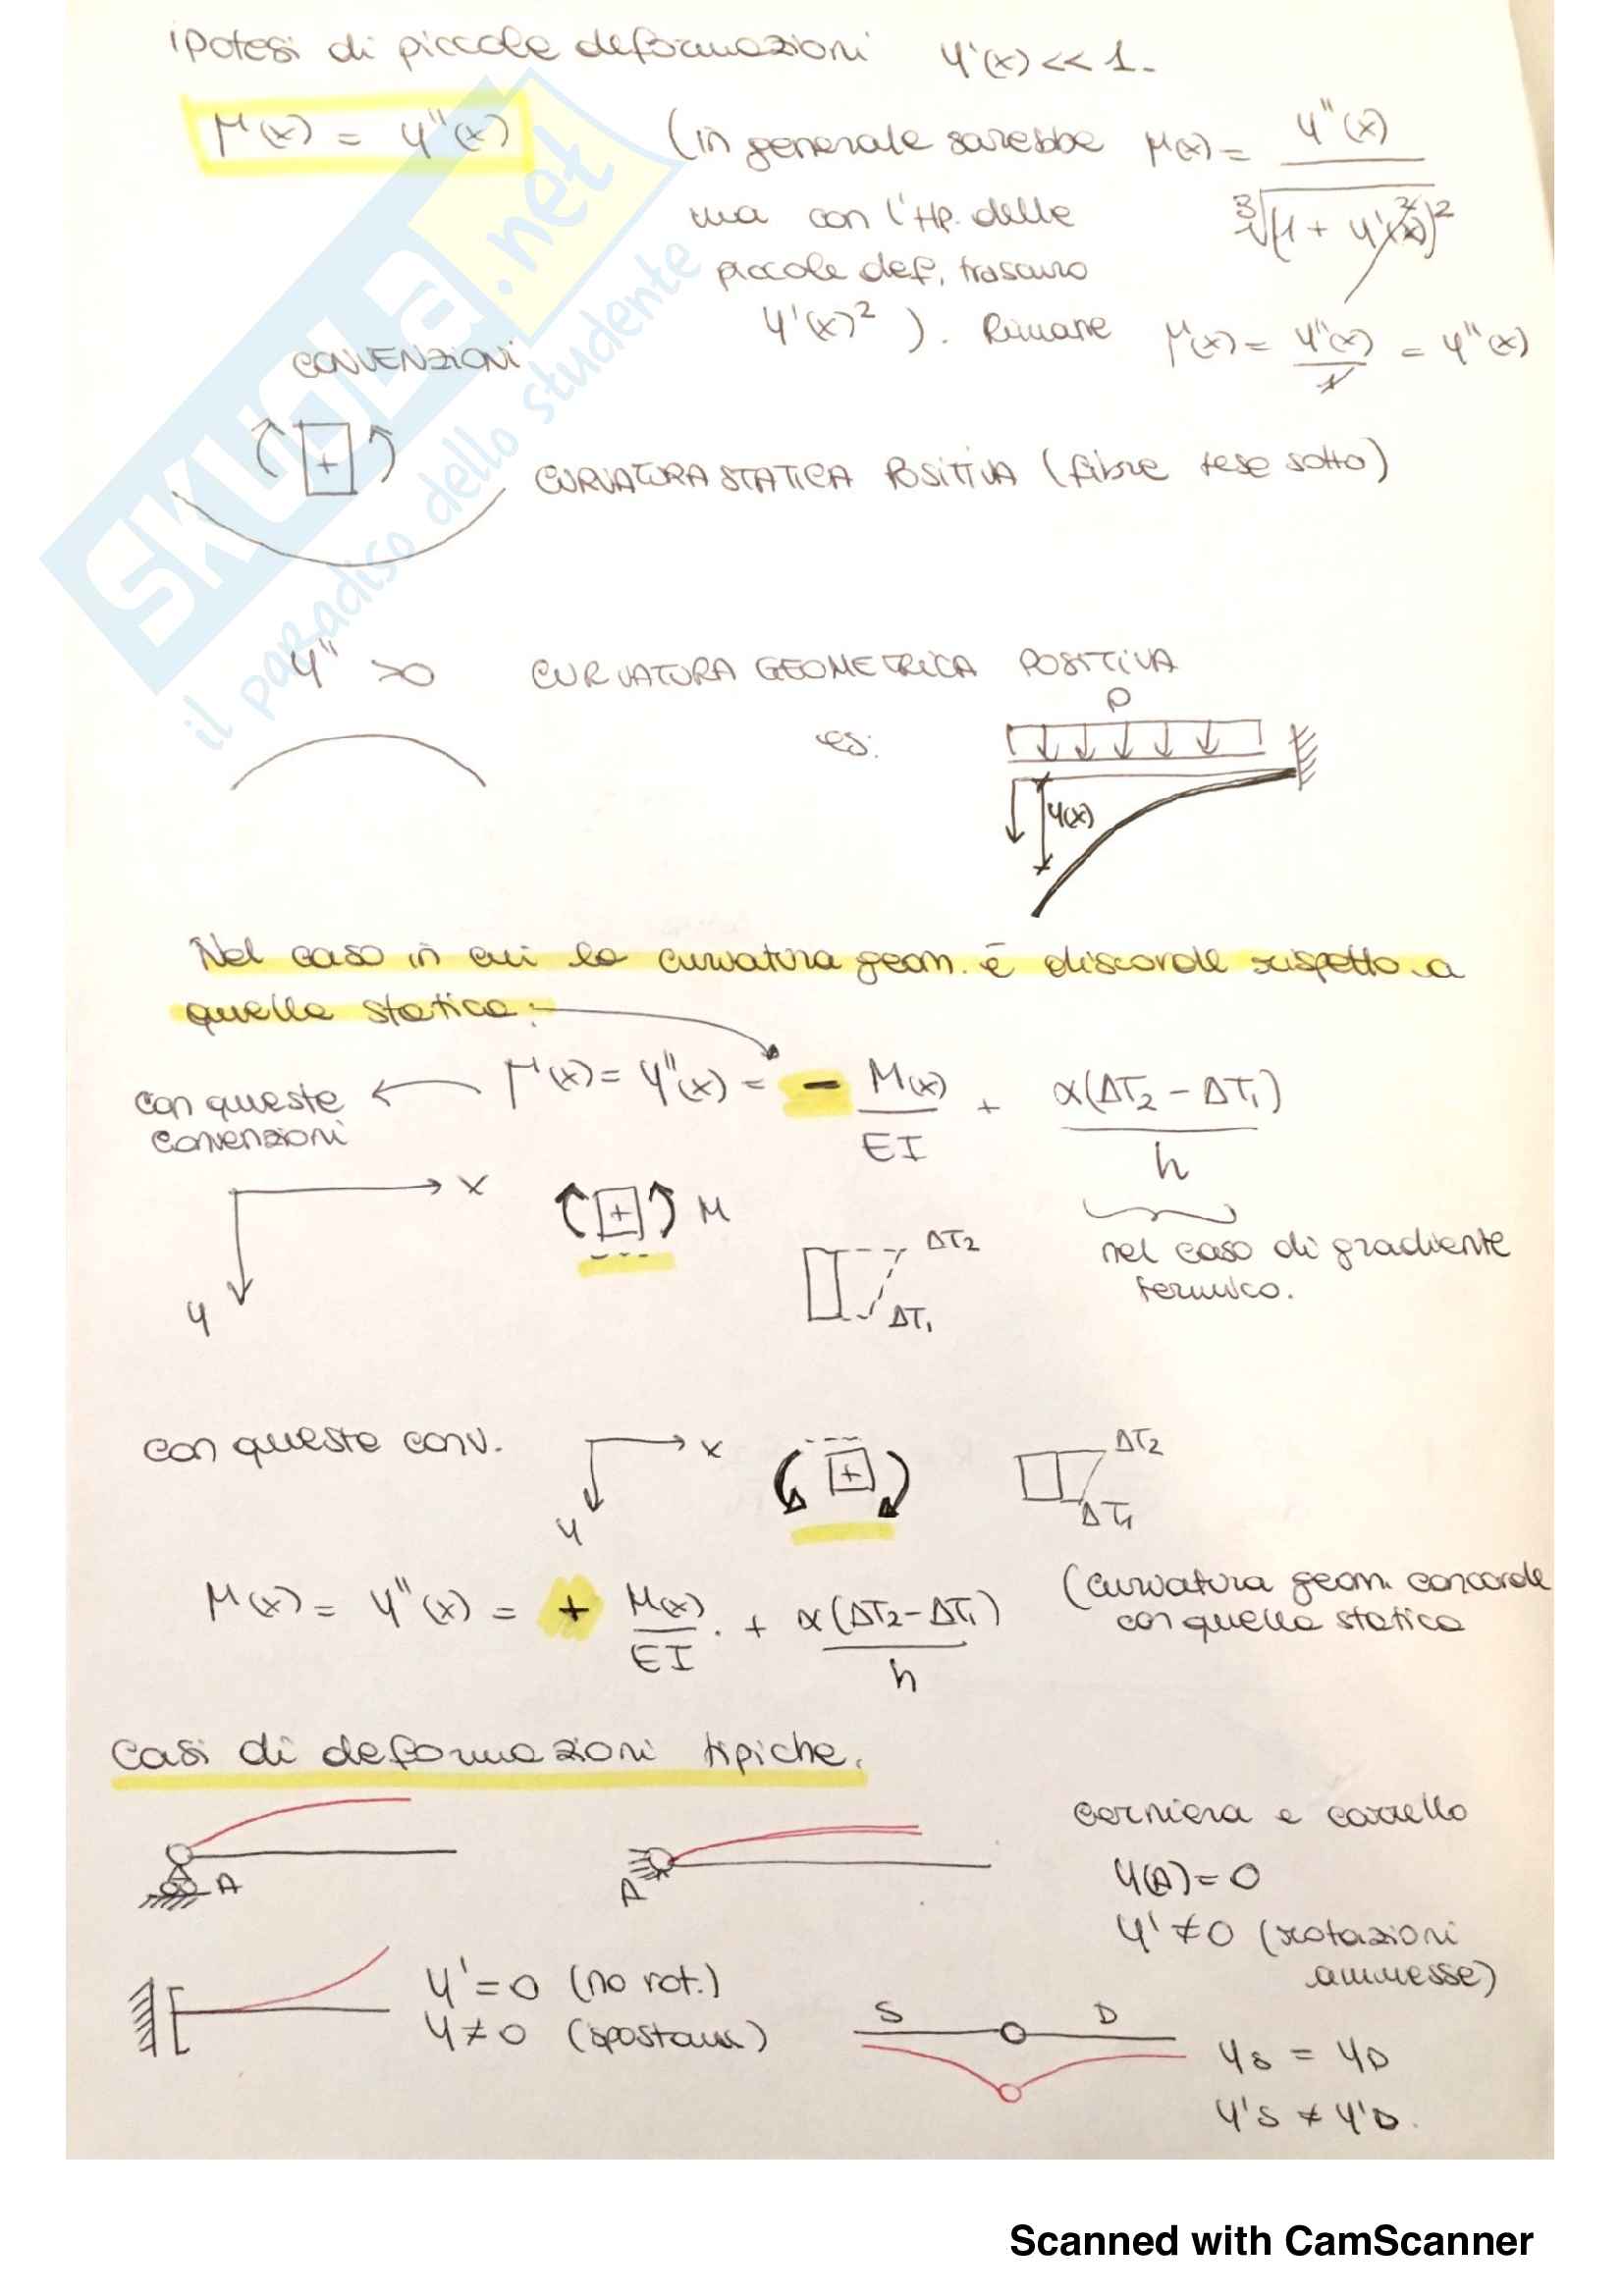 ipotesi di piccole deformazioni y'(x) << 1.
μ(x) = y''(x) (in generale sarebbe μ(x) = y''(x) / ∛(1 + y'(x)²)²
ma con l'Hp. delle
piccole def, trascuro
y'(x)² ). Rimane μ(x) = y''(x)/1 = y''(x)
CONVENZIONI
+
CURVATURA STATICA POSITIVA (fibre tese sotto)
y'' >0 CURVATURA GEOMETRICA POSITIVA
es: p
y(x)
Nel caso in cui la curvatura geom. è discorde rispetto a
quella statica:
con queste convenzioni ← μ(x) = y''(x) = - M(x)/EI + α(ΔT₂ - ΔT₁)/h
x y
+ M
ΔT₂
ΔT₁
nel caso di gradiente
termico.
con queste conv. x y + ΔT₂ ΔT₁
μ(x) = y''(x) = + M(x)/EI . + α(ΔT₂-ΔT₁)/h (curvatura geom. concorde
con quella statica
casi di deformazioni tipiche.
A A
cerniera e carrello
y(A) = 0
y' ≠ 0 (rotazioni
ammesse)
y' = 0 (no rot.)
y ≠ 0 (spostam)
S D
yS = yD
y'S ≠ y'D.
SKUOLA.net
il paradiso dello studente
Scanned with CamScanner